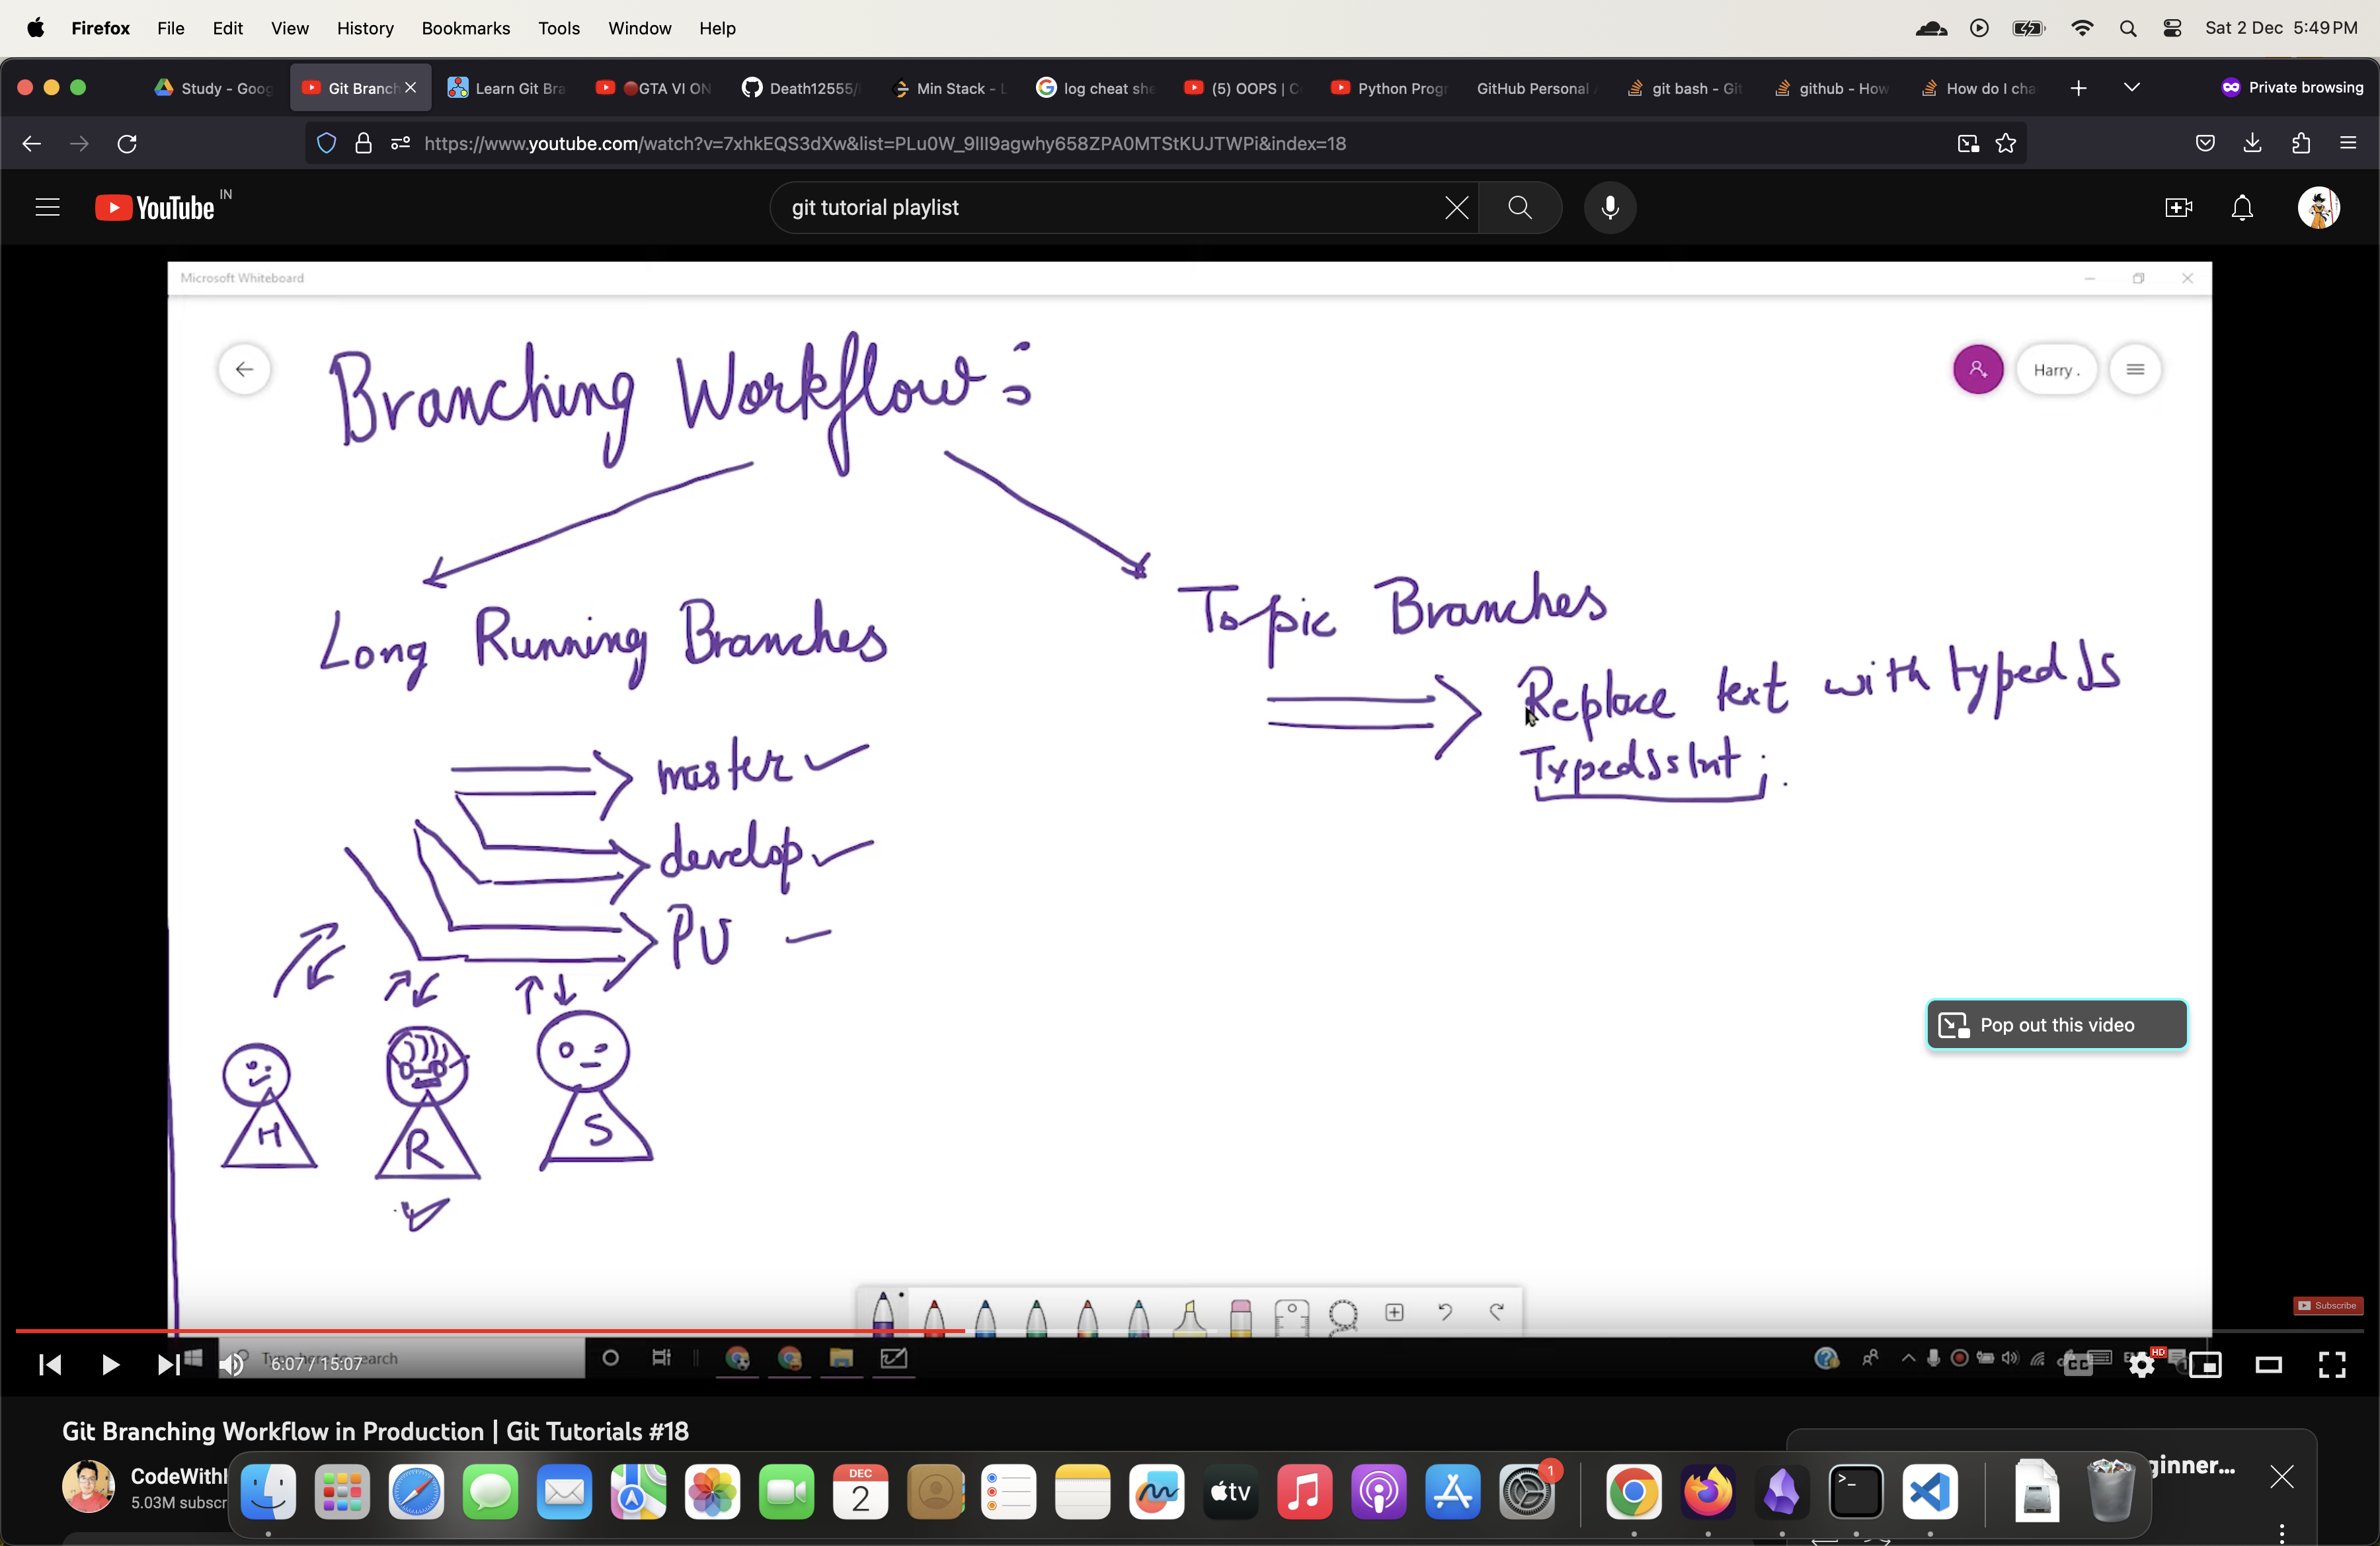 Firefox File Edit View History Bookmarks Tools Window Help
Sat 2 Dec 5:49 PM
Study - Goog
Git Branch
Learn Git Bra
GTA VI ON
Death12555/
Min Stack - L
log cheat she
(5) OOPS | C
Python Progr
GitHub Personal
git bash - Git
github - How
How do I cha
Private browsing
https://www.youtube.com/watch?v=7xhkEQS3dXw&list=PLu0W_9lII9agwhy658ZPA0MTStKUJTWPi&index=18
YouTube IN
git tutorial playlist
Microsoft Whiteboard
Branching Workflow :
Harry .
Long Running Branches
Topic Branches
Replace text with typedJs
TypedJsInt ;
master
develop
PU
H
R
S
Pop out this video
Subscribe
Type here to search
6:07 / 15:07
CC
HD
Git Branching Workflow in Production | Git Tutorials #18
CodeWithH
5.03M subscr
DEC
2
tv
1
ginner...